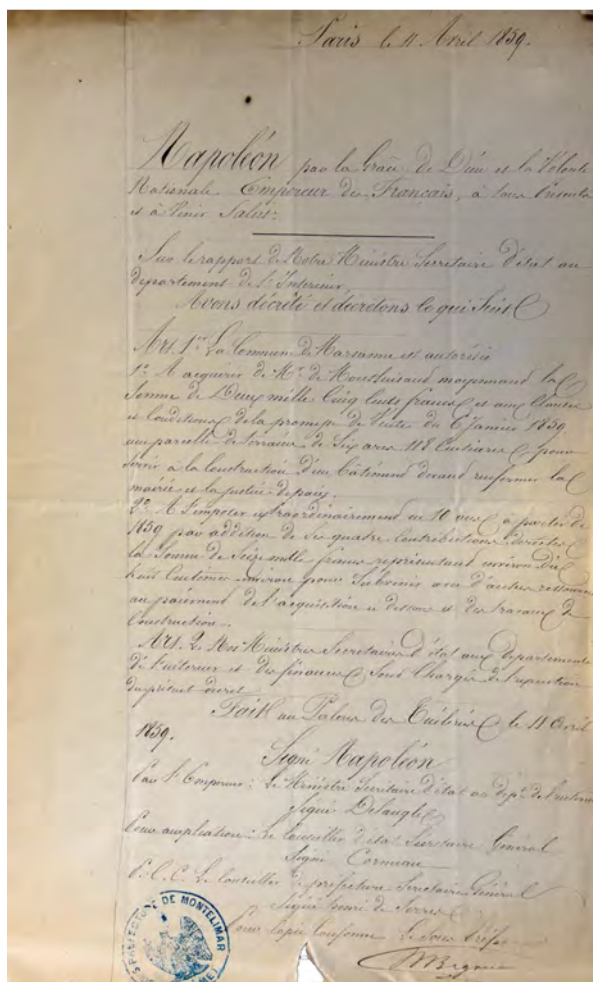 Paris le 11 Avril 1859.
Napoléon par la Grâce de Dieu et la Volonté
Nationale Empereur des Francais, à tous Présents
et à Venir Salut:
Sur le rapport de Notre Ministre Secretaire d'état au
departement de l'Interieur,
Avons décrété et décretons ce qui suit
Art. 1er La Commune de Marsanne est autorisée
1o A acquerir de Mr. de Montluisand moyennand la
Somme de Deux mille Cinq Cents francs et aux Clauses
et Conditions de la promesse de Vente du 6 Janvier 1859
une parcelle de terrain de Six ares 118 Centiares pour
servir à la Construction d'un bâtiment devand renfermer la
mairie et la justice de paix.
2o A S'imposer extraordinairement en 10 ans à partir de
1859 par addition de ses quatre Contributions directes
la Somme de Seize mille francs représentant environ dix
huit Centimes environ pour Subvenir avec d'autres ressources
au paiement de l'acquisition et des travaux de
Construction.
Art. 2. Nos Ministres Secretaires d'état aux departements
de l'interieur et des finances Sont Chargés de l'execution
du présent decret
Fait au Palais des Tuileries le 11 Avril
1859.
Signé Napoléon
Par l'Empereur: Le Ministre Secrétaire d'état au dept. de l'interieur
Signé Delangle
Pour ampliation: Le Conseiller d'état Secretaire Général
Signé Cornuau
P. C. C. Le Conseiller de préfecture Secretaire Général
Signé Henri de Serres
Pour Copie Conforme Le Sous Préfet
S.PREFECTURE DE MONTELIMAR